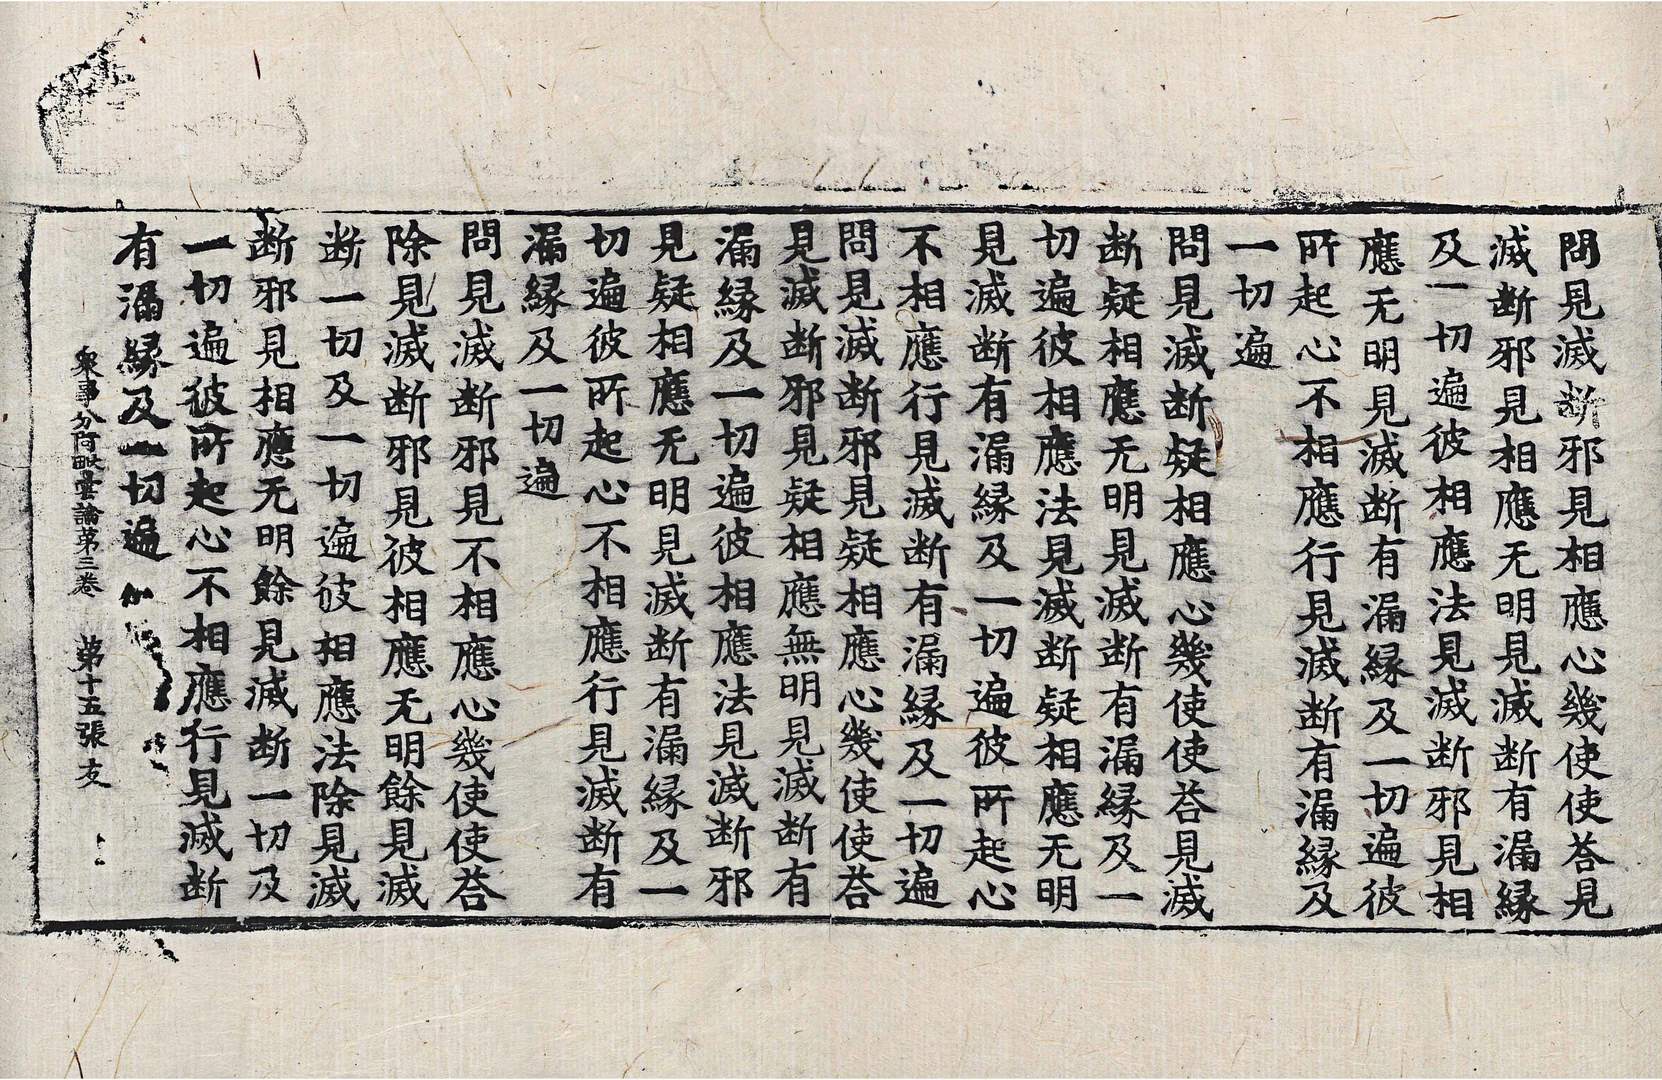 問見滅斷邪見相應心幾使使荅見
滅断邪見相應无明見滅断有漏縁
及一切遍彼相應法見滅断邪見相
應无明見滅断有漏縁及一切遍彼
所起心不相應行見滅断有漏縁及
一切遍
問見滅断疑相應心幾使使荅見滅
断疑相應无明見滅断有漏縁及一
切遍彼相應法見滅断疑相應无明
見滅断有漏縁及一切遍彼所起心
不相應行見滅断有漏縁及一切遍
問見滅断邪見疑相應心幾使使荅
見滅断邪見疑相應無明見滅断有
漏縁及一切遍彼相應法見滅断邪
見疑相應无明見滅断有漏縁及一
切遍彼所起心不相應行見滅断有
漏縁及一切遍
問見滅断邪見不相應心幾使使荅
除見滅断邪見彼相應无明餘見滅
断一切及一切遍彼相應法除見滅
断邪見相應无明餘見滅断一切及
一切遍彼所起心不相應行見滅断
有漏縁及一切遍
衆事分阿毗曇論第三卷 第十五張 友